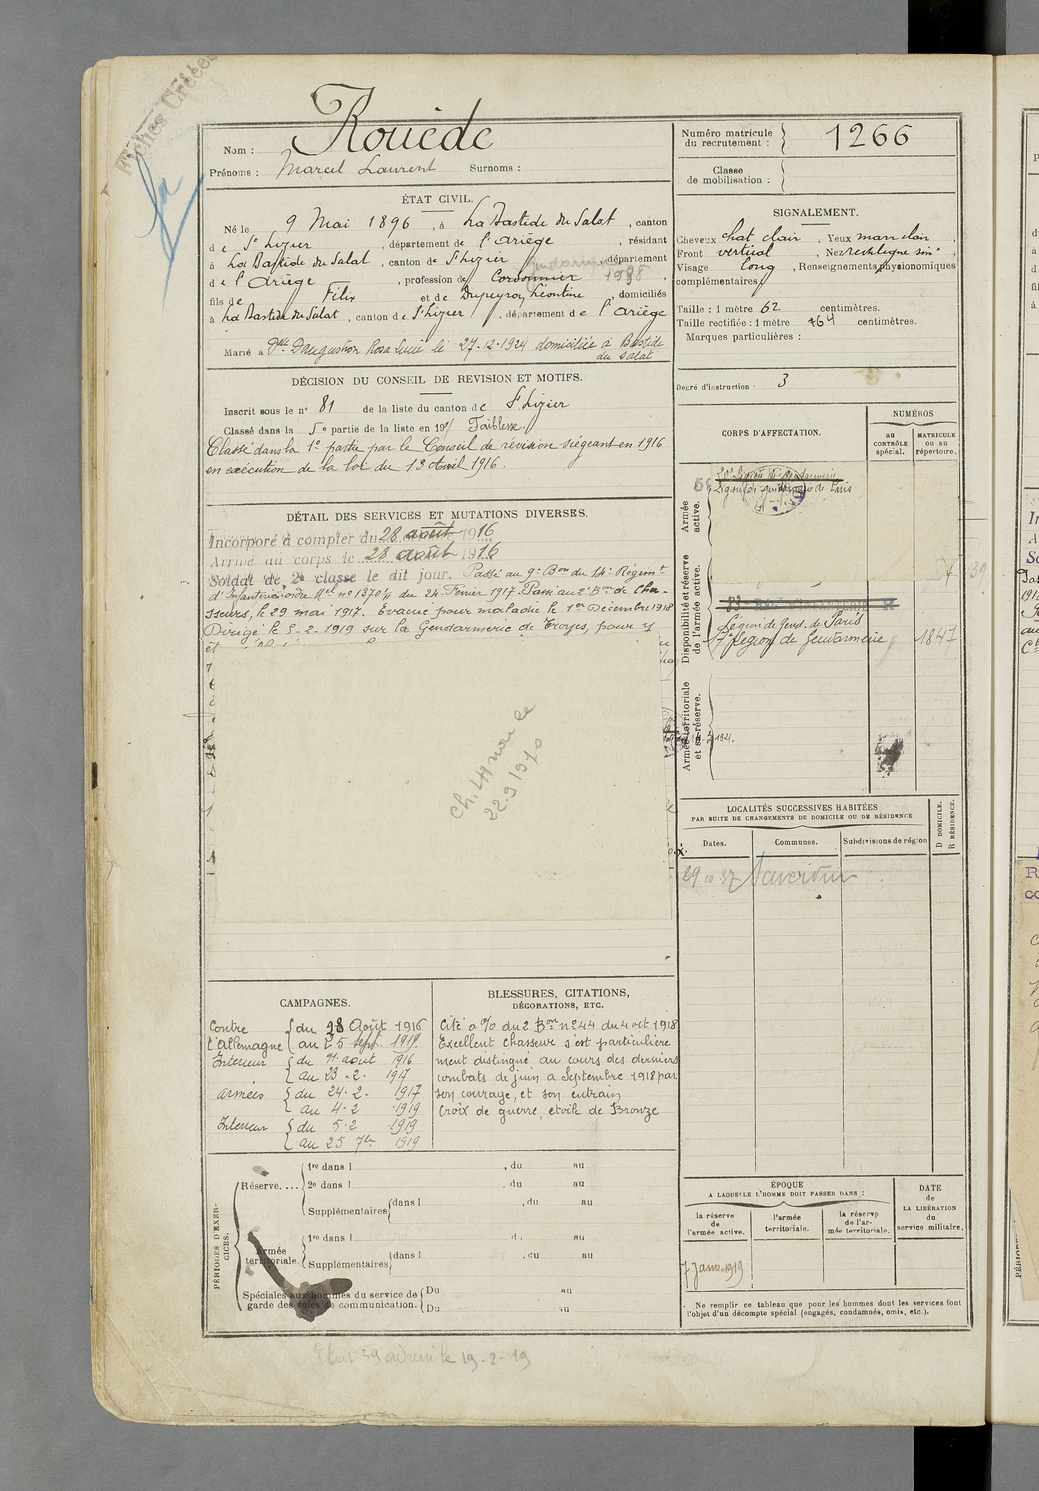 Fiches Créées
Nom : Rouède
Prénoms : Marcel Laurent Surnoms :
Numéro matricule du recrutement : 1266
Classe de mobilisation :
ÉTAT CIVIL.
Né le 9 Mai 1896, à La Bastide du Salat, canton
de St Lizier, département de l'Ariège, résidant
à La Bastide du Salat, canton de St Lizier, département
de l'Ariège, profession de Cordonnier
fils de Félix et de Dupeyron Léontine, domiciliés
à La Bastide du Salat, canton de St Lizier, département de l'Ariège
Marié à Dlle Rosa le 27-12-1924 domiciliée à Bastide
du Salat
SIGNALEMENT.
Cheveux chat clair, Yeux marr clair,
Front vertical, Nez rectiligne
Visage long, Renseignements physionomiques
complémentaires :
Taille : 1 mètre 62 centimètres.
Taille rectifiée : 1 mètre 64 centimètres.
Marques particulières :
Degré d'instruction : 3
DÉCISION DU CONSEIL DE REVISION ET MOTIFS.
Inscrit sous le n° 81 de la liste du canton de St Lizier
Classé dans la 5e partie de la liste en 191 Faiblesse.
Classé dans la 1e partie par le Conseil de révision siégeant en 1916
en exécution de la loi du 13 Avril 1916.
DÉTAIL DES SERVICES ET MUTATIONS DIVERSES.
Incorporé à compter du 28 août 1916
Arrivé au corps le 28 août 1916
Soldat de 2e classe le dit jour. Passé au 9e Bon du 14e Régimt
d'Infanterie ordre Mel n° 1370 du 24 Février 1917. Passé au 2e Bon de Cha-
sseurs, le 29 mai 1917. Évacué pour maladie le 1er Décembre 1918
Dirigé le 5-2-1919 sur la Gendarmerie de Troyes, pour y
22.9.1970
CORPS D'AFFECTATION.
NUMÉROS
AU CONTRÔLE spécial.
MATRICULE OU AU répertoire.
Armée active.
Disponibilité et réserve de l'armée active.
Légion de Gend. de Paris
17e Légion de Gendarmerie 1847
Armée territoriale et sa réserve.
LOCALITÉS SUCCESSIVES HABITÉES
PAR SUITE DE CHANGEMENTS DE DOMICILE OU DE RÉSIDENCE
D DOMICILE.
R RÉSIDENCE.
Dates. Communes. Subdivisions de région
29 10 37 Saverdun
CAMPAGNES.
Contre l'Allemagne { du 28 Août 1916
au 25 sept. 1919.
Interieur { du 28 août 1916
au 23-2- 1917
armées { du 24-2- 1917
au 4-2 1919
Interieur { du 5-2 1919
au 25 7bre 1919
BLESSURES, CITATIONS,
DÉCORATIONS, ETC.
Cité a % du 2 Bon n° 44 du 4 oct 1918
Excellent chasseur s'est particulière
ment distingué au cours des derniers
combats de juin a Septembre 1918 par
son courage, et son entrain
Croix de guerre, etoile de Bronze
PÉRIODES D'EXERCICES.
Réserve.... 1re dans l , du au
2e dans l , du au
Supplémentaires dans l , du au
Armée territoriale. 1re dans l , du au
Supplémentaires dans l , du au
Spéciales aux hommes du service de garde des voies de communication. Du au
Du au
ÉPOQUE
A LAQUELLE L'HOMME DOIT PASSER DANS :
la réserve de l'armée active.
l'armée territoriale.
la réserve de l'armée territoriale.
DATE de LA LIBÉRATION du service militaire.
7 Janv. 1919
Ne remplir ce tableau que pour les hommes dont les services font
l'objet d'un décompte spécial (engagés, condamnés, omis, etc.).
Etat 39 adressé le 19-2-19